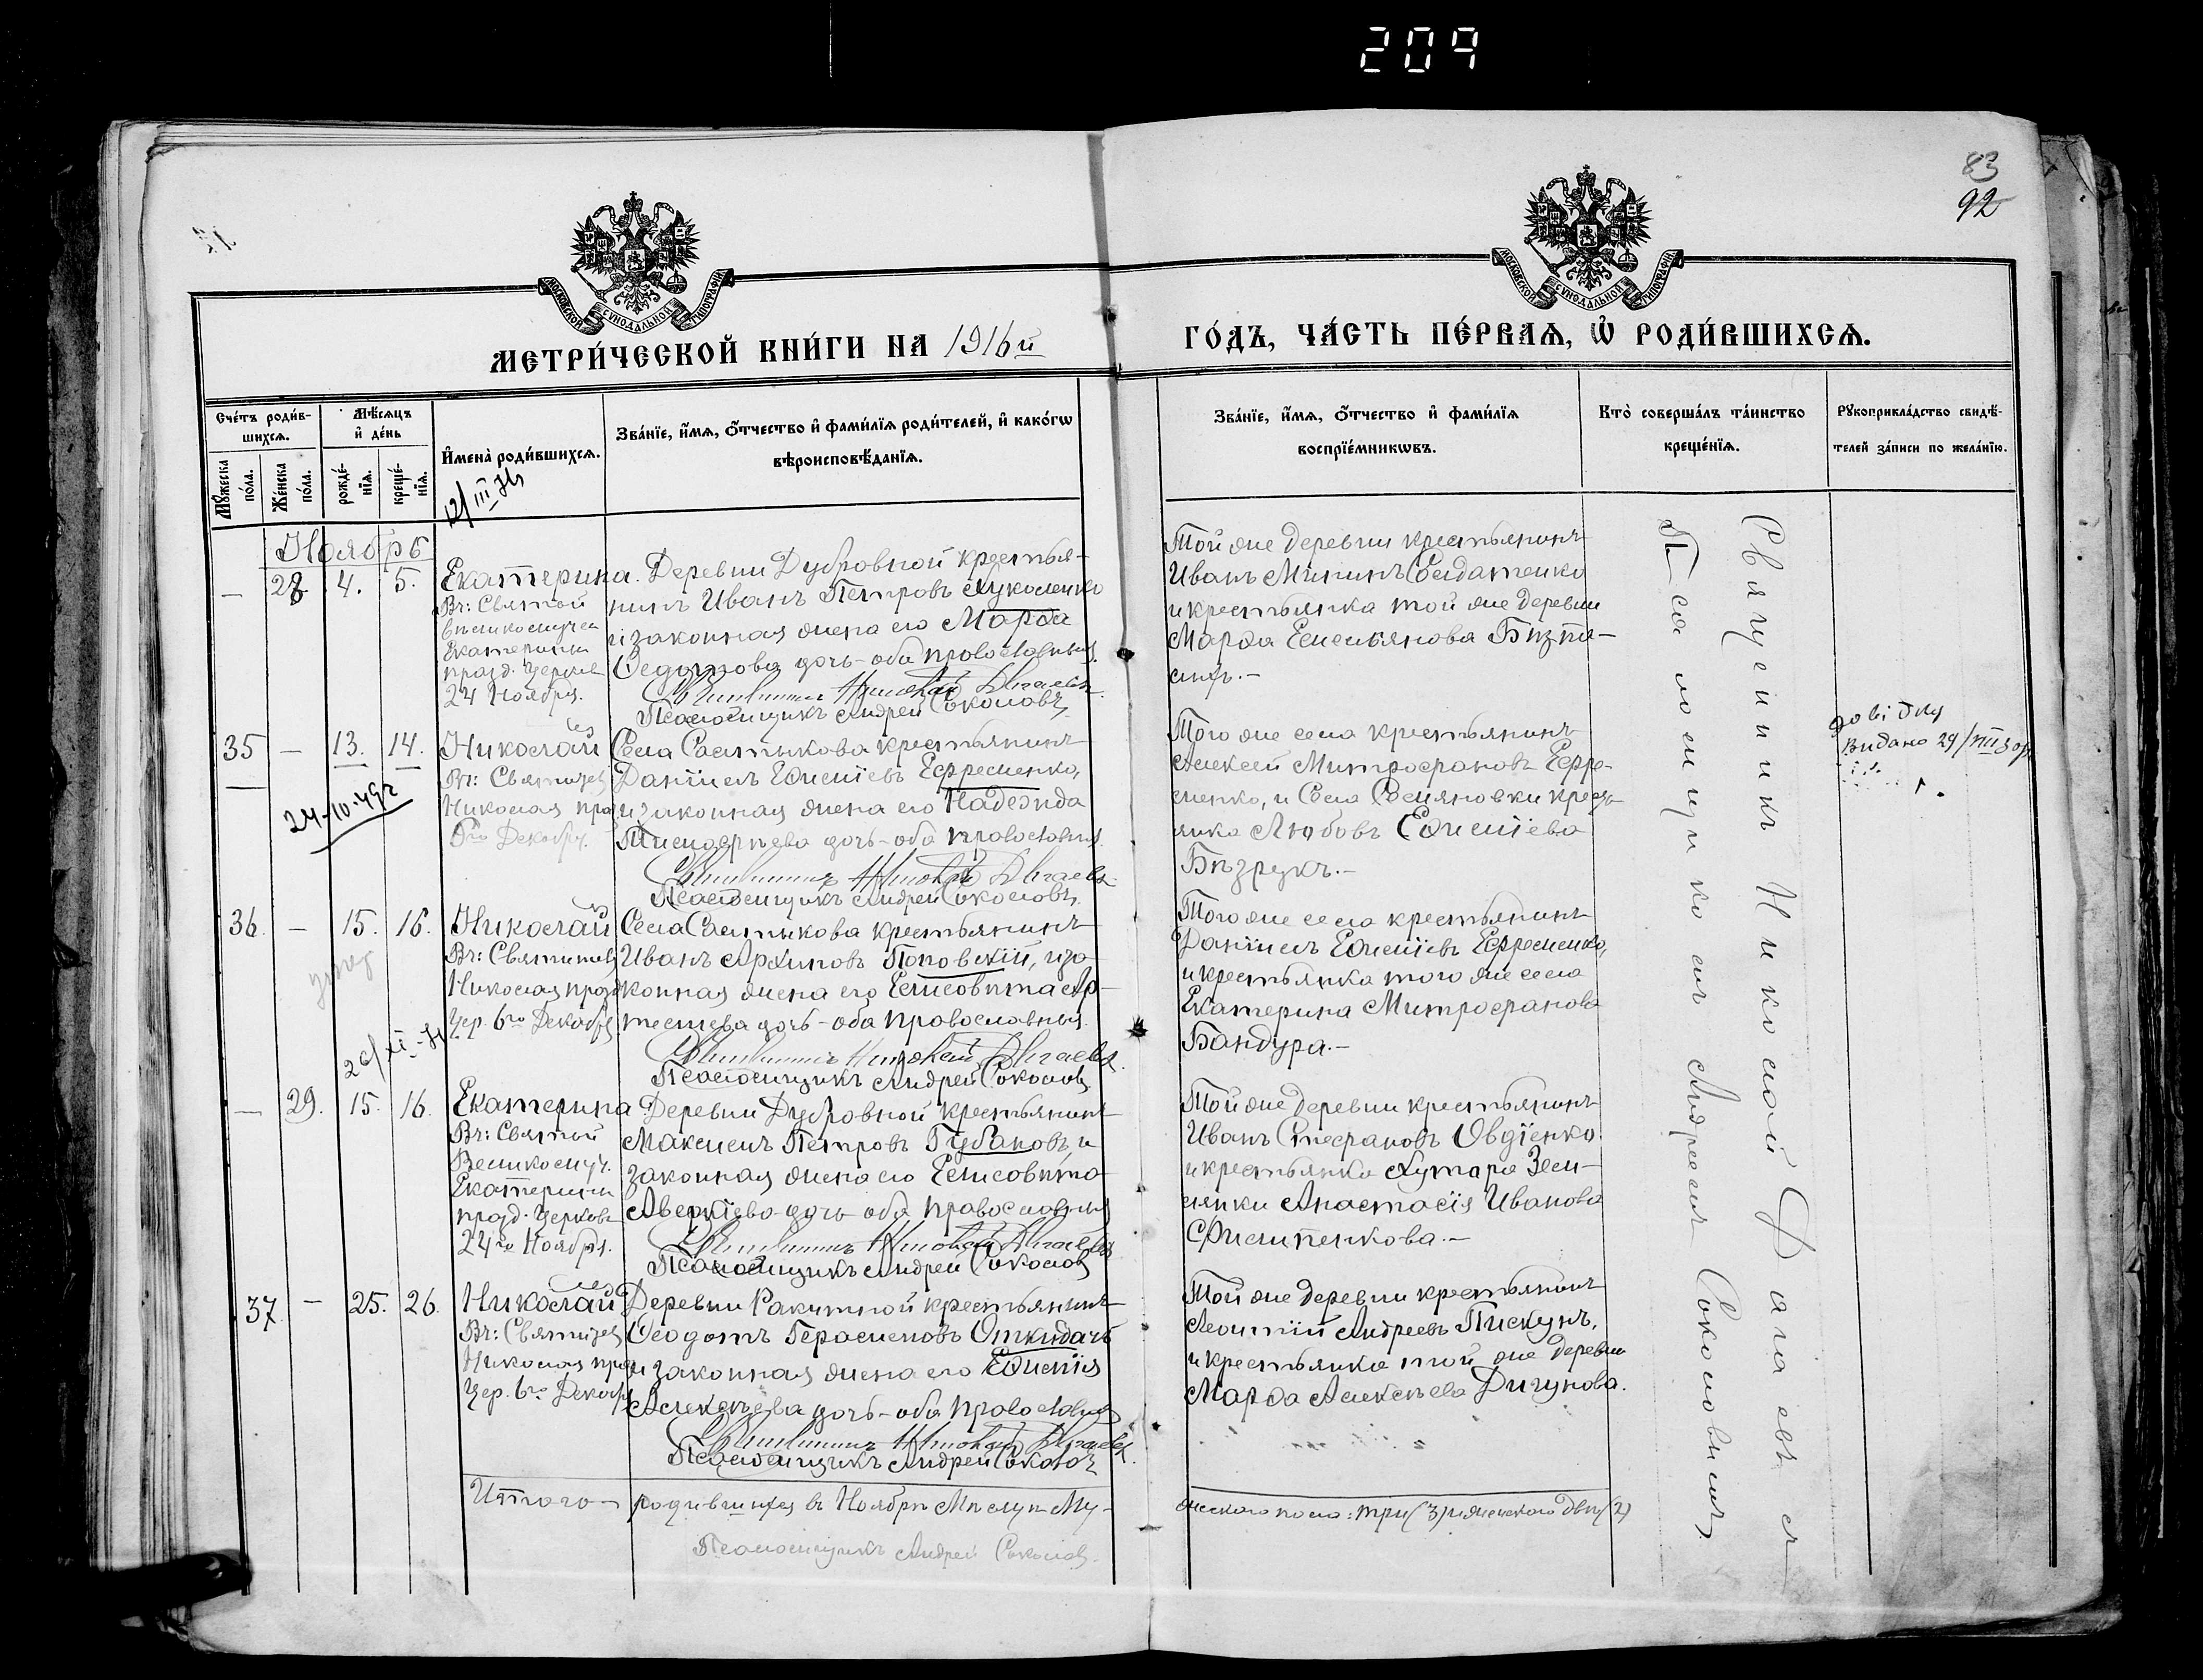 209
83
92
МОСКОВСКОЙ СУНОДАЛЬНОЙ ТИПОГРАФІИ
МОСКОВСКОЙ СУНОДАЛЬНОЙ ТИПОГРАФІИ
МЕТРИ́ЧЕСКОЙ КНИ́ГИ НА 1916й
ГО́ДЪ, ЧА́СТЬ ПЕ́РВАѦ, Ѽ РОДИ́ВШИХСѦ.
Сче́тъ роди́в-
шихсѧ.
Мѣ́сѧцъ
и҆ де́нь
И҆мена̀ роди́вшихсѧ.
Зва́нїе, и҆́мѧ, ѻ҆́тчество и҆ фами́лїѧ роди́телей, и҆ како́гѡ
вѣроисповѣ́данїѧ.
Мꙋ́жеска
по́ла.
Же́нска
по́ла.
рожде́-
нїѧ.
креще́-
нїѧ.
Зва́нїе, и҆́мѧ, ѻ҆́тчество и҆ фами́лїѧ
воспрїе́мникѡвъ.
Кто̀ соверша́лъ та́инство
креще́нїѧ.
Рꙋкоприкла́дство свидѣ́-
телей за́писи по жела́нїю.
12/III
Ноябрь
— 28. 4. 5. Екатерина.
Вч: Святой
великомучен
Екатерины
празд. Церков
24 Ноября.
Деревни Дубровной крестья-
нинъ Иванъ Петровъ Лукоменко
и законная жена его Марѳа
Ѳедорова дочь - оба православныя.
Священникъ Николай Дагаевъ
Псаломщикъ Андрей Соколовъ
Той же деревни крестьянинъ
Иванъ Мининъ Солдатенко
и крестьянка той же деревни
Марѳа Емельянова
35 — 13. 14. Николай
Вч: Святителя
Николая праз
6го Декабря.
24-10-49г
Села Салтыкова крестьянинъ
Даніилъ Еѳиміевъ Ефременко,
и законная жена его Надежда
дочь - оба православныя
Священникъ Николай Дагаевъ
Псаломщикъ Андрей Соколовъ.
Того же села крестьянинъ
Алексей Митрофановъ Ефре-
менко, и Села Семяновки кресть-
янка Любовь Еѳиміева
Безрукъ.—
довідку
видано 29/VIII 30р
36. — 15. 16. Николай
Вч: Святителя
Николая празд
Цер. 6го Декабря
Села Салтыкова крестьянинъ
Иванъ Архиповъ Поповскій, и за-
конная жена его Елисовѣта Ар-
темиева дочь - оба православныя.
Священникъ Николай Дагаевъ.
Псаломщикъ Андрей Соколовъ
Того же села крестьянинъ
Даніилъ Еѳиміевъ Ефременко,
и крестьянка того же села
Екатерина Митрофанова
Бандура.—
26/XI
— 29. 15. 16. Екатерина
Вч: Святой
Великомуч.
Екатерины
празд. Церковь
24го Ноября.
Деревни Дубровной крестьянинъ
Максимъ Петровъ Губановъ, и
законная жена его Елисовѣта
Аверкіева дочь оба православныя
Священникъ Николай Дагаевъ
Псаломщикъ Андрей Соколовъ
Той же деревни крестьянинъ
Иванъ Стефановъ Овдіенко
и крестьянка хутара Зем-
лянки Анастасія Иванова
Филипенкова.—
37. — 25. 26. Николай
Вч: Святителя
Николая праз
Цер. 6го Декабря
Деревни Ракитной крестьянинъ
Ѳеодотъ Герасимовъ Откидачъ
и законная жена его Еѳимія
Алексѣева дочь - оба православныя
Священникъ Николай Дагаевъ.
Псаломщикъ Андрей Соколовъ
Той же деревни крестьянинъ
Леонтій Андреевъ Пискунъ,
и крестьянка той же деревни
Марѳа Алексѣева Дигунова.
Священникъ Николай Дагаевъ
Псаломщикомъ Андреемъ Соколовымъ.
Итого— родившихся въ Ноябрѣ Мѣсяцѣ Му-
жескаго пола: три (3) и женскаго двѣ (2)
Псаломщикъ Андрей Соколовъ.